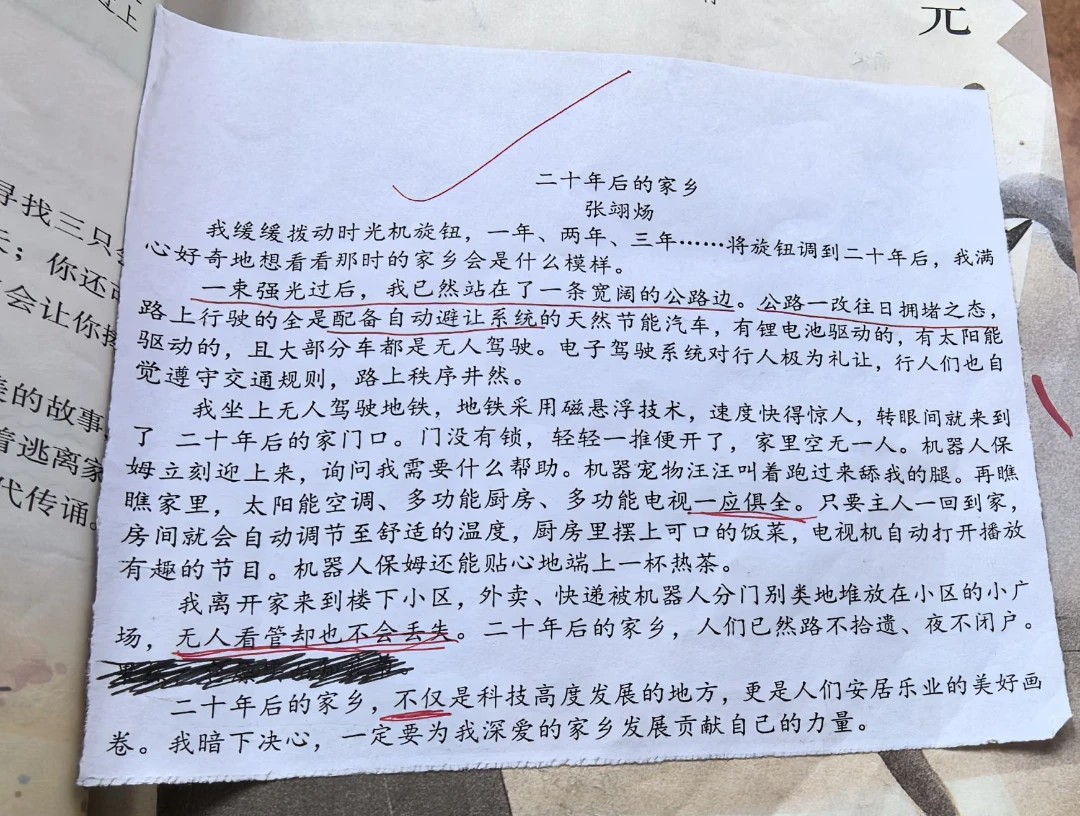 元
二十年后的家乡
张翊炀
我缓缓拨动时光机旋钮，一年、两年、三年……将旋钮调到二十年后，我满
心好奇地想看看那时的家乡会是什么模样。
一束强光过后，我已然站在了一条宽阔的公路边。公路一改往日拥堵之态，
路上行驶的全是配备自动避让系统的天然节能汽车，有锂电池驱动的，有太阳能
驱动的，且大部分车都是无人驾驶。电子驾驶系统对行人极为礼让，行人们也自
觉遵守交通规则，路上秩序井然。
我坐上无人驾驶地铁，地铁采用磁悬浮技术，速度快得惊人，转眼间就来到
了 二十年后的家门口。门没有锁，轻轻一推便开了，家里空无一人。机器人保
姆立刻迎上来，询问我需要什么帮助。机器宠物汪汪叫着跑过来舔我的腿。再瞧
瞧家里，太阳能空调、多功能厨房、多功能电视一应俱全。只要主人一回到家，
房间就会自动调节至舒适的温度，厨房里摆上可口的饭菜，电视机自动打开播放
有趣的节目。机器人保姆还能贴心地端上一杯热茶。
我离开家来到楼下小区，外卖、快递被机器人分门别类地堆放在小区的小广
场，无人看管却也不会丢失。二十年后的家乡，人们已然路不拾遗、夜不闭户。
二十年后的家乡，不仅是科技高度发展的地方，更是人们安居乐业的美好画
卷。我暗下决心，一定要为我深爱的家乡发展贡献自己的力量。
寻找三只
；你还
会让你
美的故事
着逃离家
代传诵。